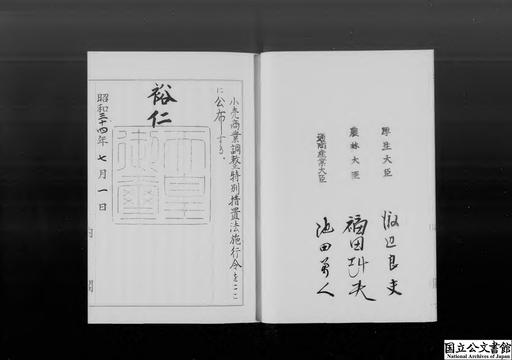 小売商業調整特別措置法施行令をここ
に公布する。
裕仁
天皇
御璽
昭和三十四年七月一日
内閣
厚生大臣 渡辺良夫
農林大臣 福田赳夫
通商産業大臣 池田勇人
国立公文書館
National Archives of Japan